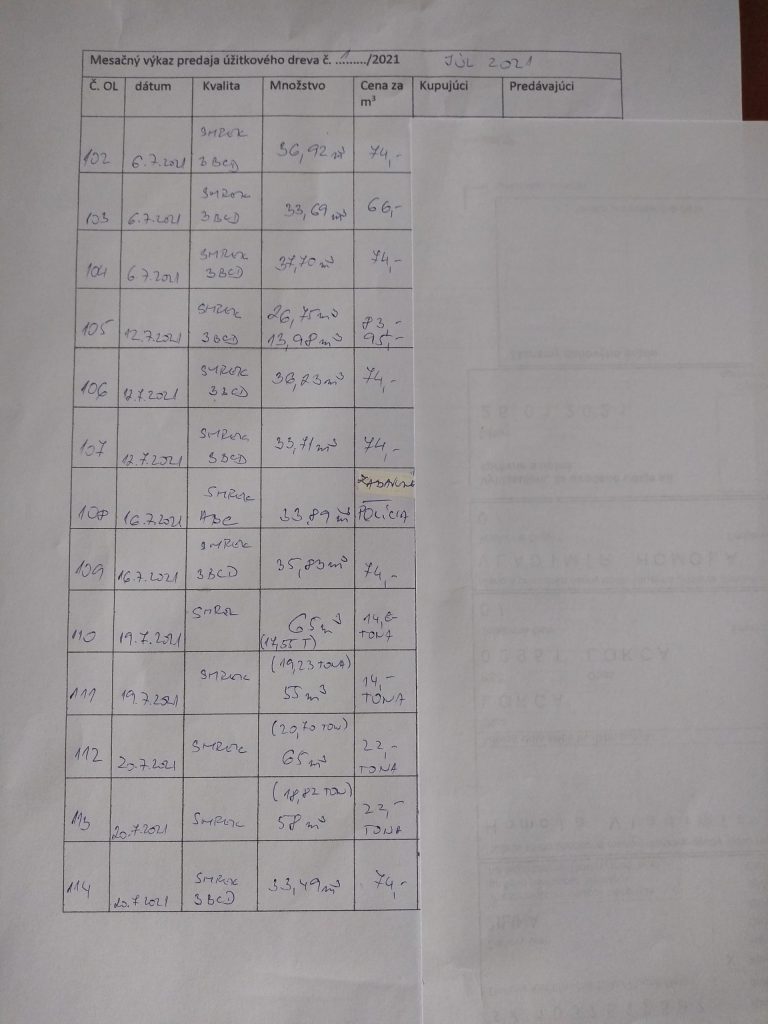 Mesačný výkaz predaja úžitkového dreva č. 1........./2021 JÚL 2021
Č. OL dátum Kvalita Množstvo Cena za m³ Kupujúci Predávajúci
102 6.7.2021 SMREK 3BCD 36,92 m³ 74,-
103 6.7.2021 SMREK 3BCD 33,69 m³ 66,-
104 6.7.2021 SMREK 3BCD 37,70 m³ 74,-
105 12.7.2021 SMREK 3BCD 26,75 m³ 83,-
13,98 m³ 95,-
106 12.7.2021 SMREK 3BCD 36,23 m³ 74,-
107 12.7.2021 SMREK 3BCD 33,71 m³ 74,-
108 16.7.2021 SMREK ABC 33,89 m³ POLÍCIA
109 16.7.2021 SMREK 3BCD 35,83 m³ 74,-
110 19.7.2021 SMREK 65 m³ (17,55 T) 14,€ TONA
111 19.7.2021 SMREK (19,23 TONA) 55 m³ 14,- TONA
112 20.7.2021 SMREK (20,70 TON) 65 m³ 22,- TONA
113 20.7.2021 SMREK (18,82 TON) 58 m³ 22,- TONA
114 20.7.2021 SMREK 3BCD 33,49 m³ 74,-